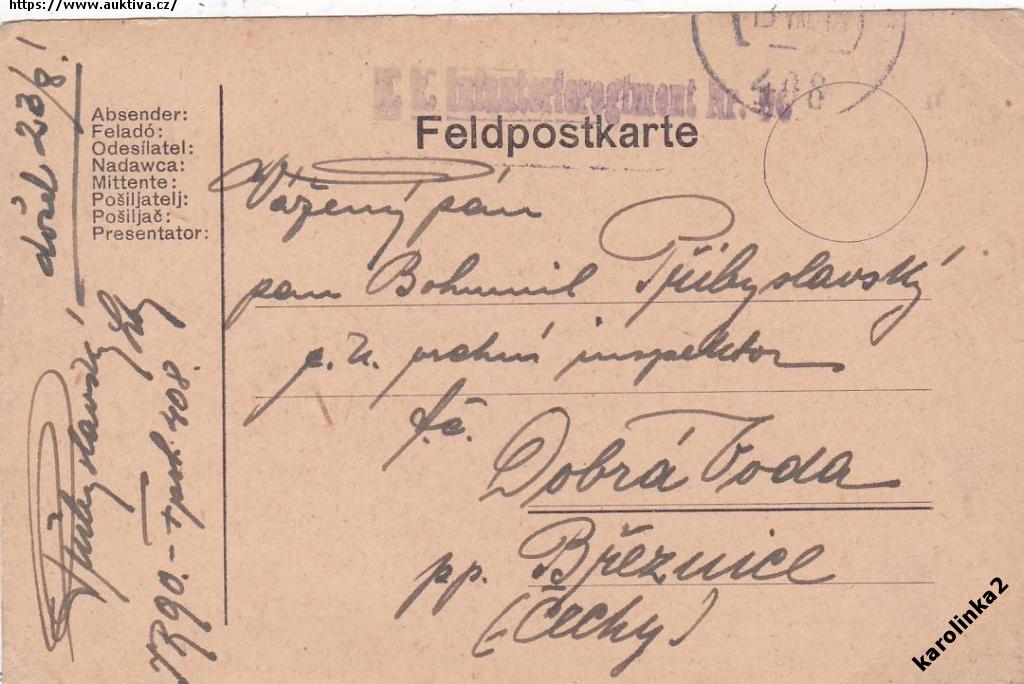 https://www.auktiva.cz/
408
k. k. Infanterieregiment Nr.
Feldpostkarte
Absender:
Feladó:
Odesílatel:
Nadawca:
Mittente:
Pošiljatelj:
Pošiljač:
Presentator:
došel 23/8!
Vážený pán
pan Bohumil Přibyslavský
c. k. vrchní inspektor
Dobrá Voda
pp. Březnice
(Čechy)
Přibyslavský
408.
karolinka2